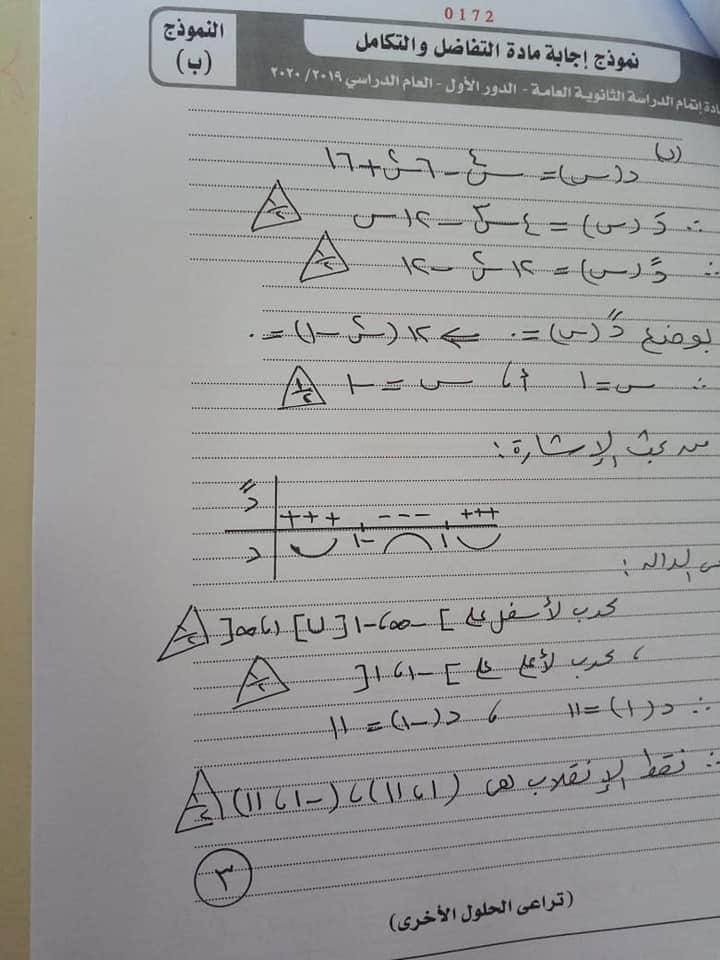 0172
النموذج
(ب)
نموذج إجابة مادة التفاضل والتكامل
إتمام الدراسة الثانوية العامة - الدور الأول - العام الدراسي ٢٠١٩/٢٠٢٠
(ب)
د(س) = س⁴ - ٦س² + ١٦
∴ دَ(س) = ٤س³ - ١٢س
١/٢
∴ دً(س) = ١٢س² - ١٢
١/٢
بوضع دً(س) = ٠ ⇐ ١٢(س² - ١) = ٠
∴ س = ١ أ، س = -١
١/٢
من بحث الإشارة:
دً +++ --- +++
د -١ ١
الدالة:
محدب لأسفل على ]-∞، -١[ U ]١، ∞[
١/٢
، محدب لأعلى على ]-١، ١[
١/٢
∴ د(١) = ١١ ، د(-١) = ١١
∴ نقط الإنقلاب هى (١، ١١)، (-١، ١١)
١/٢
٣
(تراعى الحلول الأخرى)